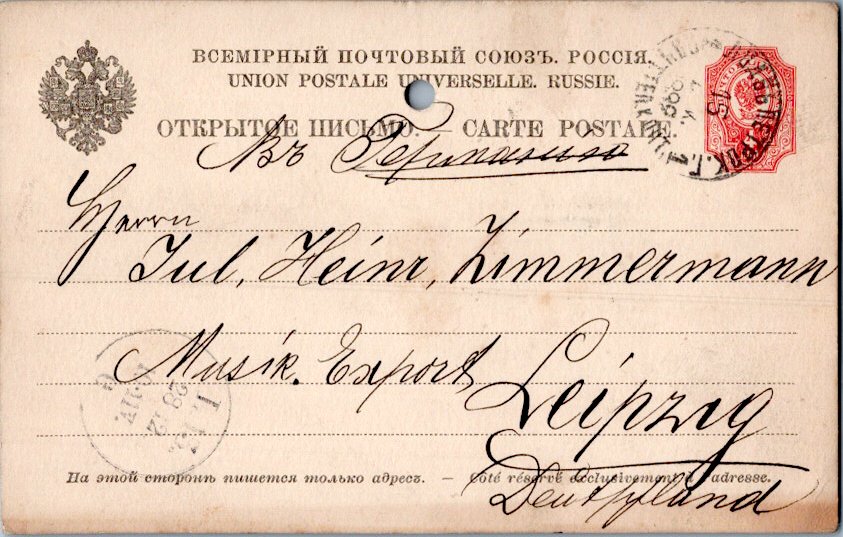 ВСЕМІРНЫЙ ПОЧТОВЫЙ СОЮЗЪ. РОССІЯ.
UNION POSTALE UNIVERSELLE. RUSSIE.
ОТКРЫТОЕ ПИСЬМО. — CARTE POSTALE.
Въ Германію
Herrn
Jul. Heinr. Zimmermann
Musik. Export
Leipzig
На этой сторонѣ пишется только адресъ. — Côté réservé exclusivement à l'adresse.
Deutschland